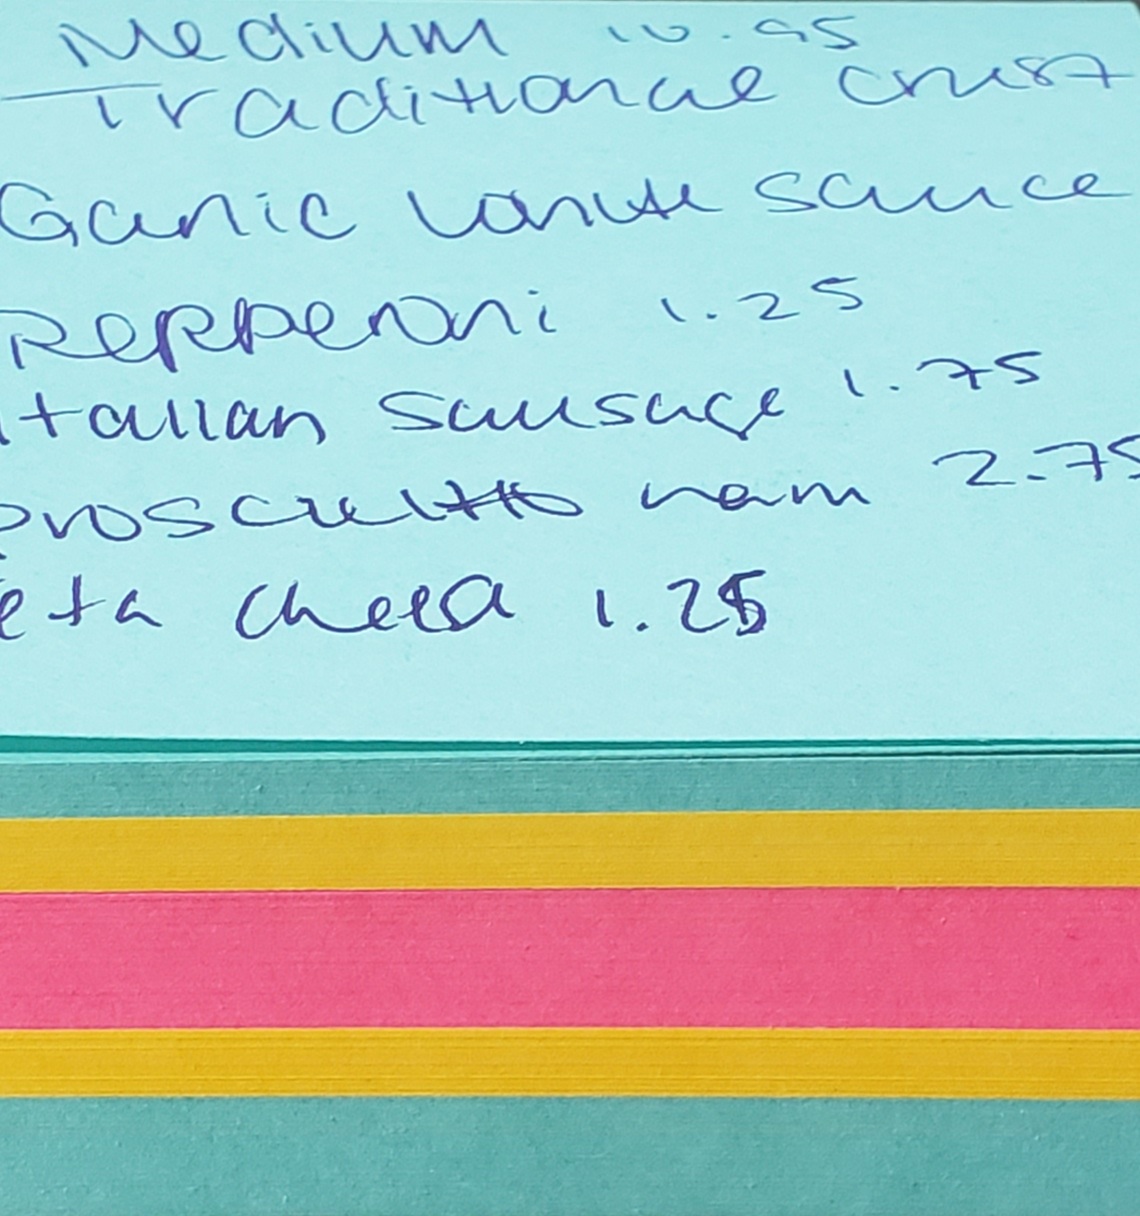 Medium 10.95
Traditional crust
Garlic white sauce
Pepperoni 1.25
Italian sausage 1.75
proscuitto ham 2.75
eta cheea 1.25